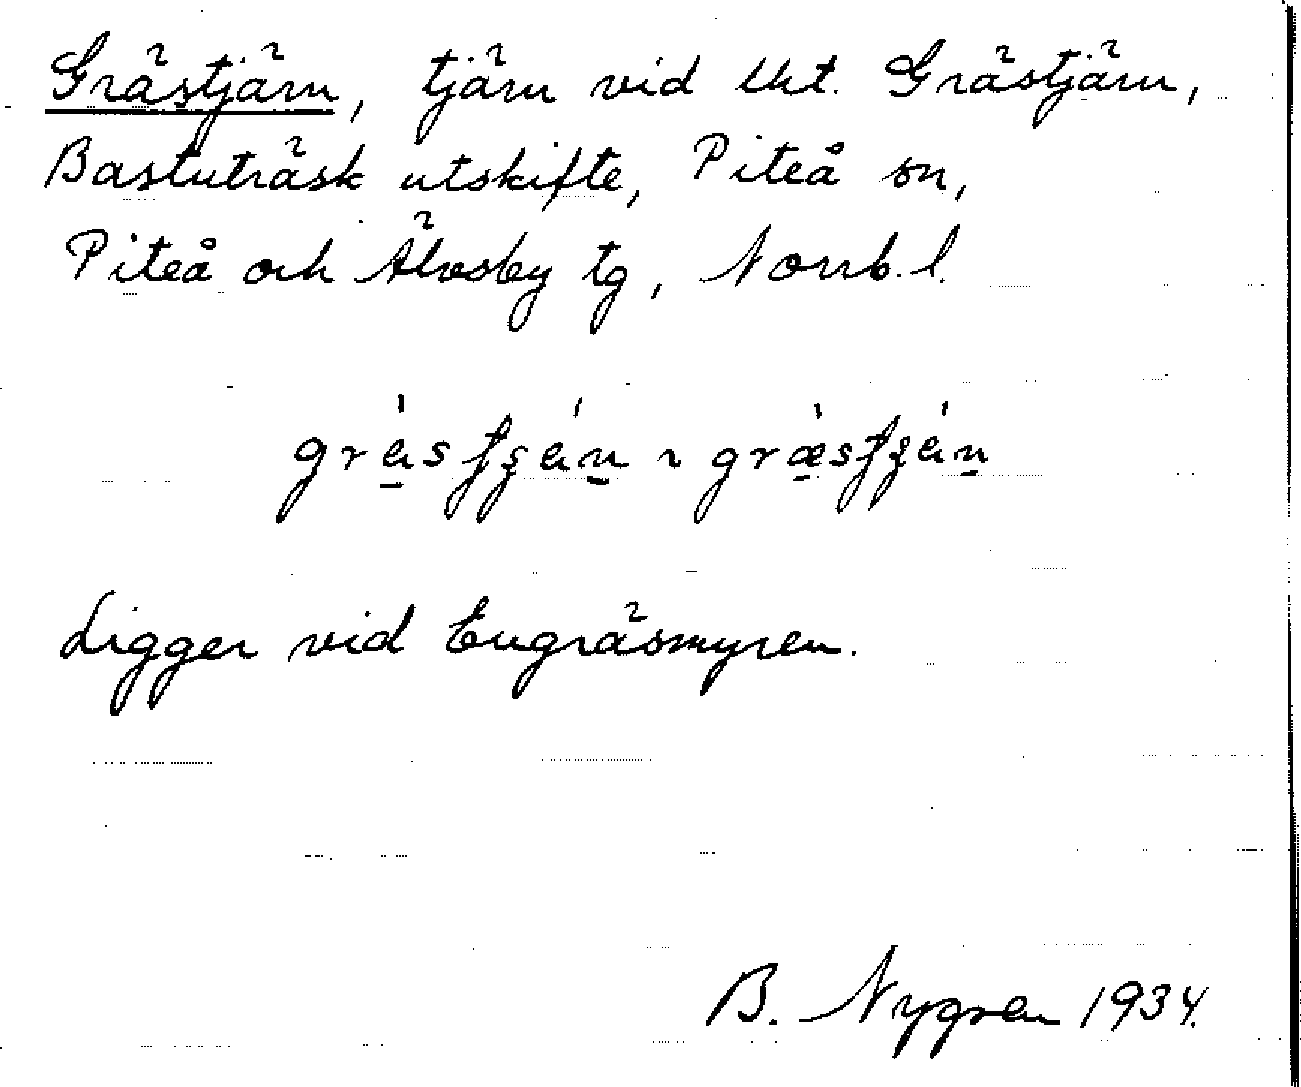 Grästjärn, tjärn vid lht. Grästjärn,
Bastuträsk utskifte, Piteå sn,
Piteå och Älvsby tg, Norrb. l.
Ligger vid Engräsmyren.
B. Nygren 1934.